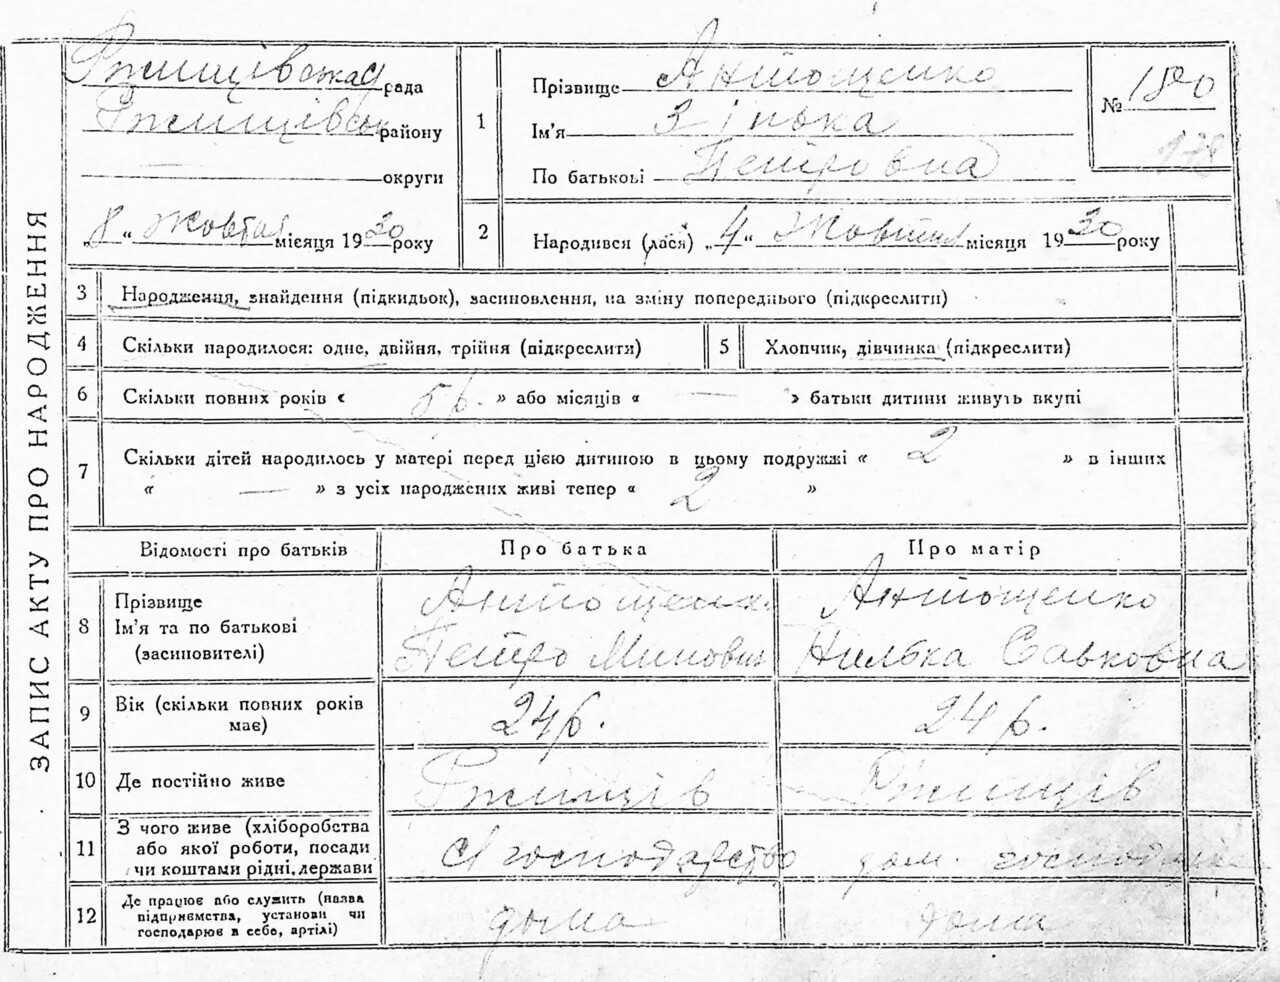 ЗАПИС АКТУ ПРО НАРОДЖЕННЯ
Ржищівська рада
Ржищівськ району
— округи
„8“ Жовтня місяця 1930 року
1
Прізвище Антощенко
Ім'я Зінька
По батькові Петровна
№ 180
178
2
Народився (лася) „4“ Жовтня місяця 1930 року
3 Народження, знайдення (підкидьок), засиновлення, на зміну попереднього (підкреслити)
4 Скільки народилося: одне, двійня, трійня (підкреслити)
5 Хлопчик, дівчинка (підкреслити)
6 Скільки повних років « 5 р. » або місяців « — » батьки дитини живуть вкупі
7 Скільки дітей народилось у матері перед цією дитиною в цьому подружжі « 2 » в інших
« — » з усіх народжених живі тепер « 2 »
Відомості про батьків Про батька Про матір
8 Прізвище
Ім'я та по батькові
(засиновителі)
Антощенко
Петро Минович
Антощенко
Савковна
9 Вік (скільки повних років
має)
24 р. 24 р.
10 Де постійно живе Ржищів Ржищів
11 З чого живе (хліборобства
або якої роботи, посади
чи коштами рідні, держави
С/господарство дом.
12 Де працює або служить (назва
підприємства, установи чи
господарює в себе, артілі)
дома дома